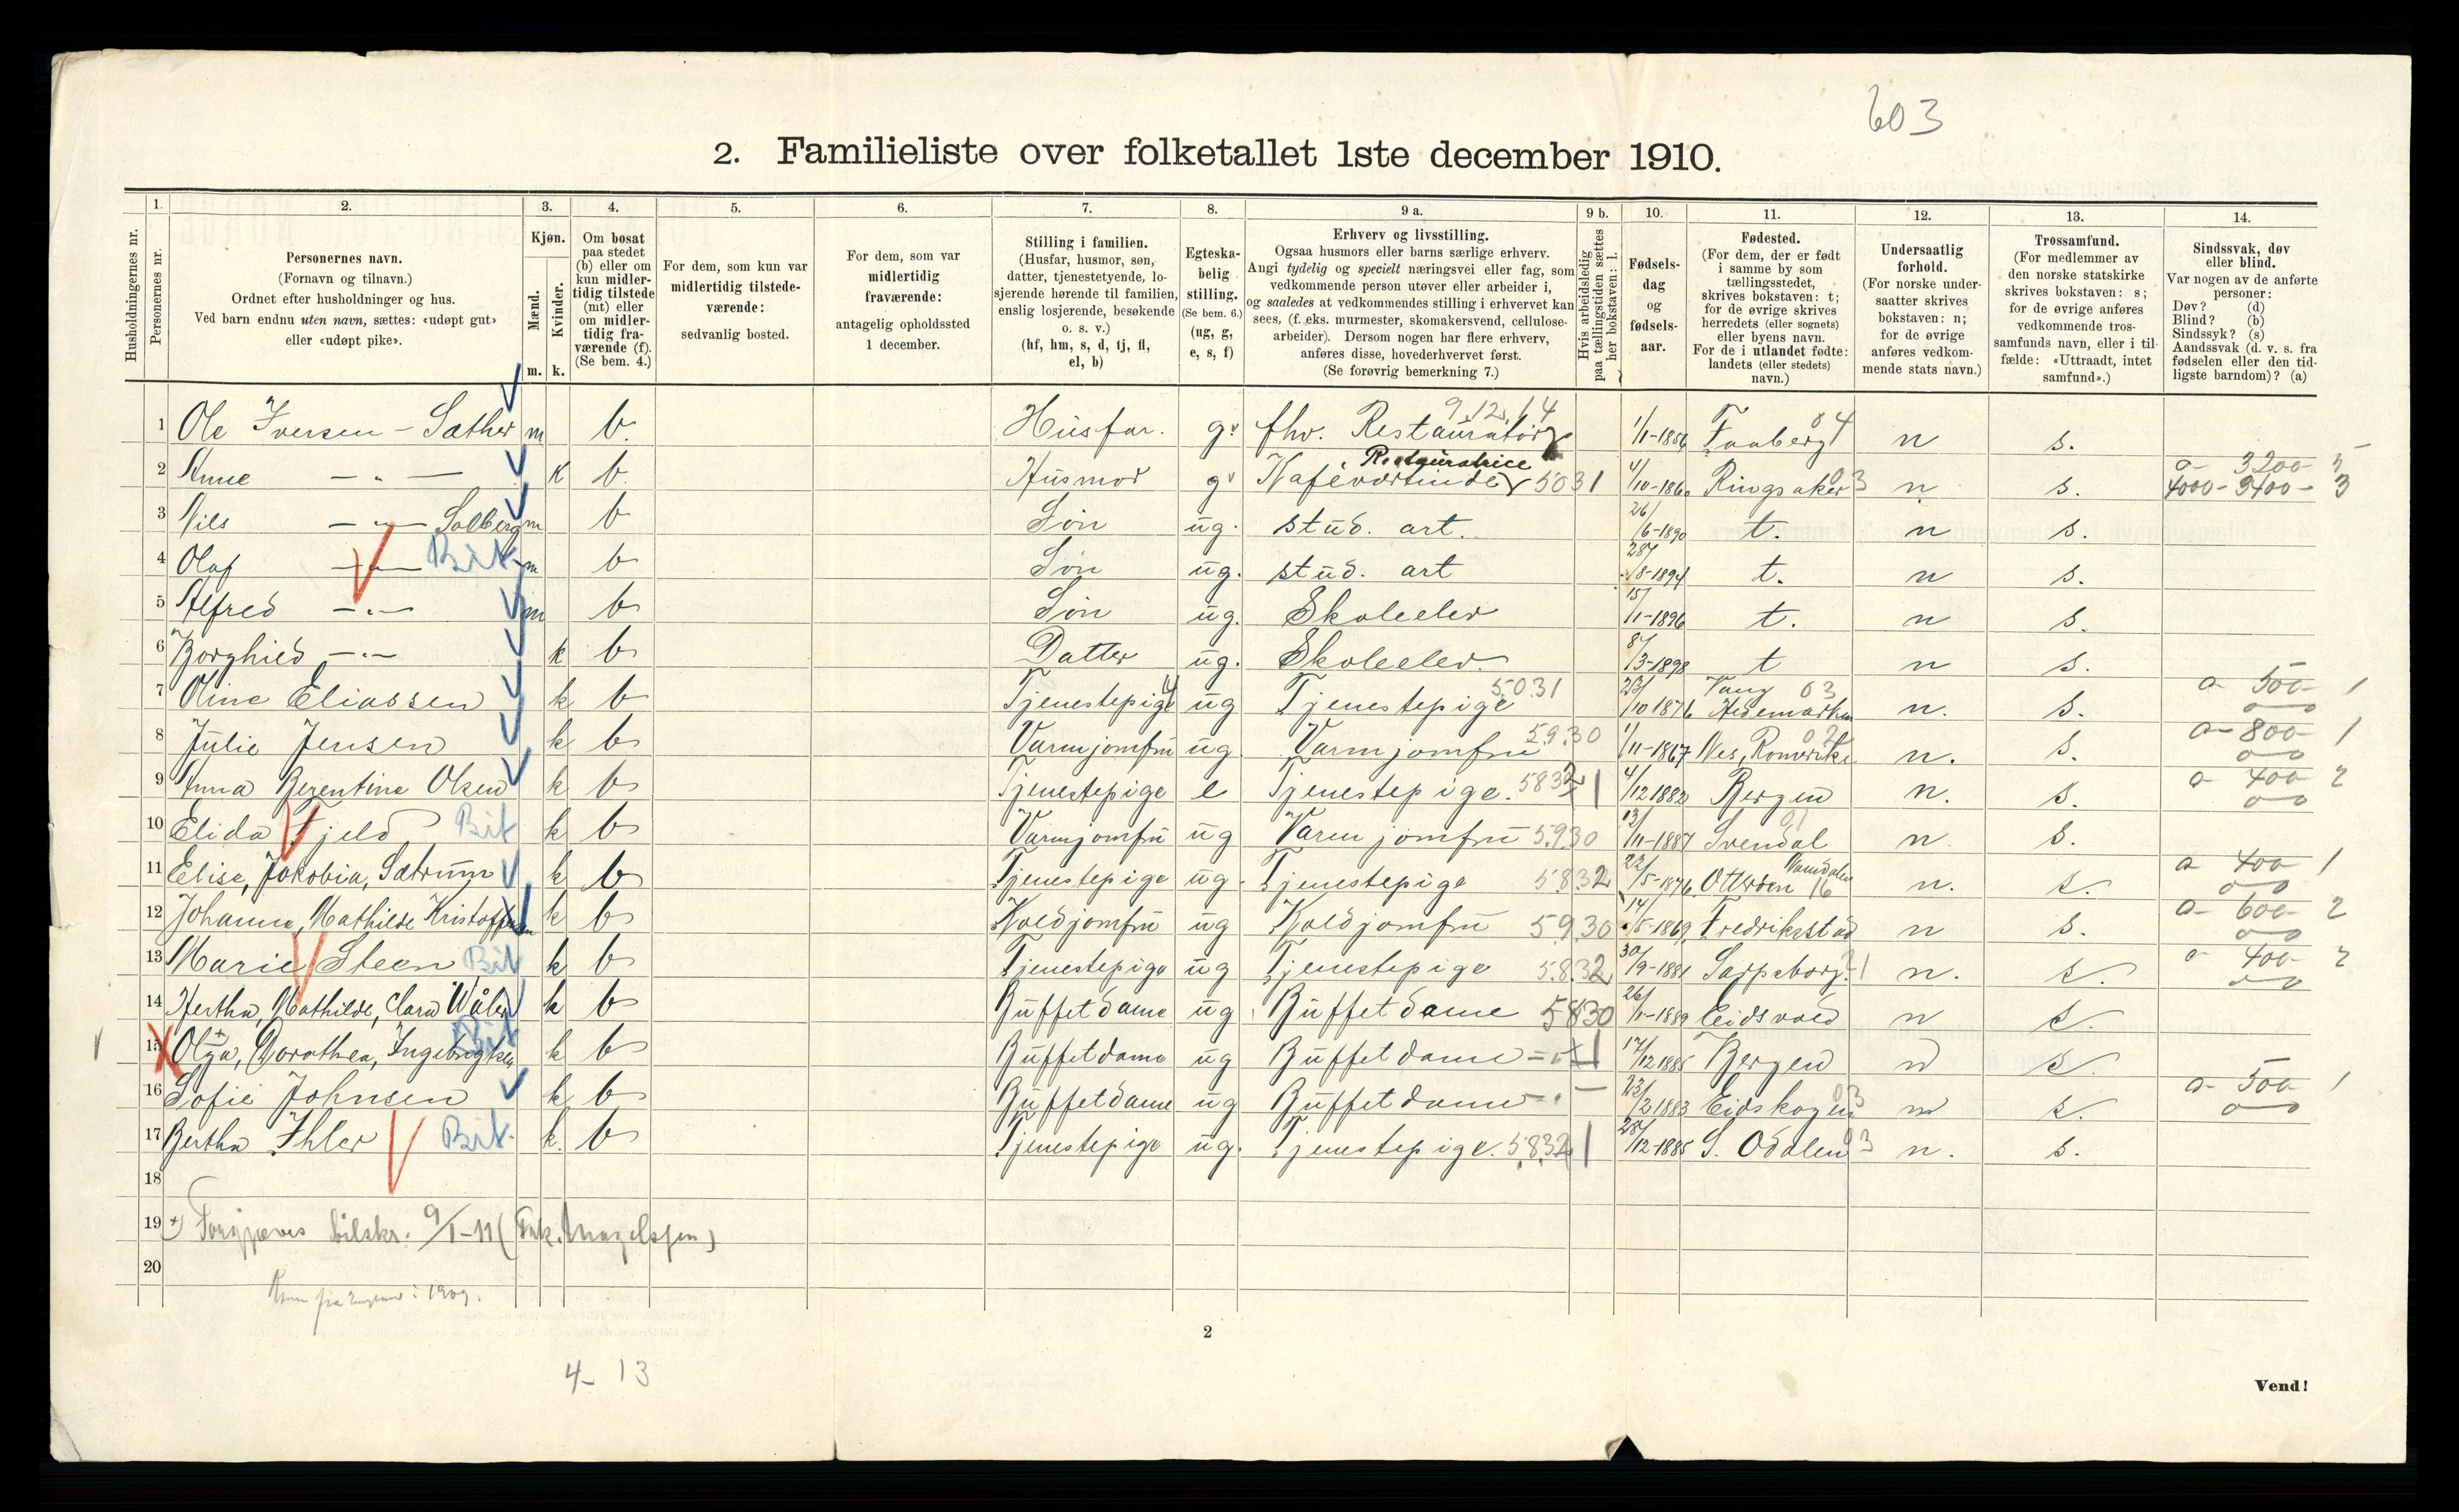 603
2. Familieliste over folketallet 1ste december 1910.
Husholdningernes nr.
1.
Personernes nr.
2.
Personernes navn.
(Fornavn og tilnavn.)
Ordnet efter husholdninger og hus.
Ved barn endnu uten navn, sættes: «udøpt gut»
eller «udøpt pike».
3.
Kjøn.
Mænd.
Kvinder.
m. k.
4.
Om bosat
paa stedet
(b) eller om
kun midler-
tidig tilstede
(mt) eller
om midler-
tidig fra-
værende (f).
(Se bem. 4.)
5.
For dem, som kun var
midlertidig tilstede-
værende:
sedvanlig bosted.
6.
For dem, som var
midlertidig
fraværende:
antagelig opholdssted
1 december.
7.
Stilling i familien.
(Husfar, husmor, søn,
datter, tjenestetyende, lo-
sjerende hørende til familien,
enslig losjerende, besøkende
o. s. v.)
(hf, hm, s, d, tj, fl,
el, b)
8.
Egteska-
belig
stilling.
(Se bem. 6.)
(ug, g,
e, s, f)
9 a.
Erhverv og livsstilling.
Ogsaa husmors eller barns særlige erhverv.
Angi tydelig og specielt næringsvei eller fag, som
vedkommende person utøver eller arbeider i,
og saaledes at vedkommendes stilling i erhvervet kan
sees, (f. eks. murmester, skomakersvend, cellulose-
arbeider). Dersom nogen har flere erhverv,
anføres disse, hovederhvervet først.
(Se forøvrig bemerkning 7.)
9 b.
Hvis arbeidsledig
paa tællingstiden sættes
her bokstaven: l.
10.
Fødsels-
dag
og
fødsels-
aar.
11.
Fødested.
(For dem, der er født
i samme by som
tællingsstedet,
skrives bokstaven: t;
for de øvrige skrives
herredets (eller sognets)
eller byens navn.
For de i utlandet fødte:
landets (eller stedets)
navn.)
12.
Undersaatlig
forhold.
(For norske under-
saatter skrives
bokstaven: n;
for de øvrige
anføres vedkom-
mende stats navn.)
13.
Trossamfund.
(For medlemmer av
den norske statskirke
skrives bokstaven: s;
for de øvrige anføres
vedkommende tros-
samfunds navn, eller i til-
fælde: «Uttraadt, intet
samfund».)
14.
Sindssvak, døv
eller blind.
Var nogen av de anførte
personer:
Døv? (d)
Blind? (b)
Sindssyk? (s)
Aandssvak (d. v. s. fra
fødselen eller den tid-
ligste barndom)? (a)
1 Ole Iversen - Sæther m b. Husfar. g. fhv. Restauratør 9.12.14 1/1-1856 Faaberg 04 n s.
2 Anne — " — k b. Husmor g. Kaféværtinde Restauratrice 5031 4/10-1860 Ringsaker 03 n s. a- 3200- 5 4000- 3400- 3
3 Nils — " — Solberg m b Søn ug. stud. art. 26/6-1890 t. n s.
4 Olaf — " — Bit m b Søn ug. stud. art 28/8-1894 t. n s.
5 Alfred — " — m b Søn ug. Skoleelev 15/1-1896 t. n s.
6 Borghild — " — k b Datter ug. Skoleelev 8/3-1898 t n s.
7 Oline Eliassen k b Tjenestepige ug Tjenestepige 5031 23/10 1876 Vang Hedemarken 03 n. s. a- 500- 1
8 Julie Jensen k b Varmjomfru ug. Varmjomfru 5930 1/11-1867 Nes, Romerike 02 n. s. a- 800- 1
9 Anna Berentine Olsen k b Tjenestepige e Tjenestepige. 5832 4/12 1882 Bergen n. s. a 400- 2
10 Elida Fjeld Bit k b Varmjomfru ug Varmjomfru 5930 13/11-1887 Svendal 01 n s.
11 Elise, Jakobia, Sætrum k b Tjenestepige ug. Tjenestepige 5832 22/5-1876 Otterøen Namdalen 16 n. s. a 400- 1
12 Johanna, Mathilde Kristoffersen k b Koldjomfru ug Koldjomfru 5930 14/5-1869 Fredriksstad n s. a- 600- 2
13 Marie Steen Bit k b Tjenestepige ug Tjenestepige 5832 30/9-1881 Sarpsborg n. s. a- 400- 2
14 Hertha, Mathilde, Clara Wåler k b Buffetdame ug Buffetdame 5830 26/1-1889 Eidsvold n s.
15 Olga, Dorothea, Ingebrigtsen Bit k b Buffetdame ug Buffetdame — " — 17/12 1885 Bergen n s.
16 Sofie Johnsen k b Buffetdame ug Buffetdame — " — 23/2 1883 Eidskogen 03 n s. a- 500 1
17 Bertha Ihler Bit k. b Tjenestepige ug. Tjenestepige. 5832 28/12-1885 S. Odalen 03 n. s.
18
19 +) 9/1-11
20
fra England i 1909.
2
4- 13
Vend!